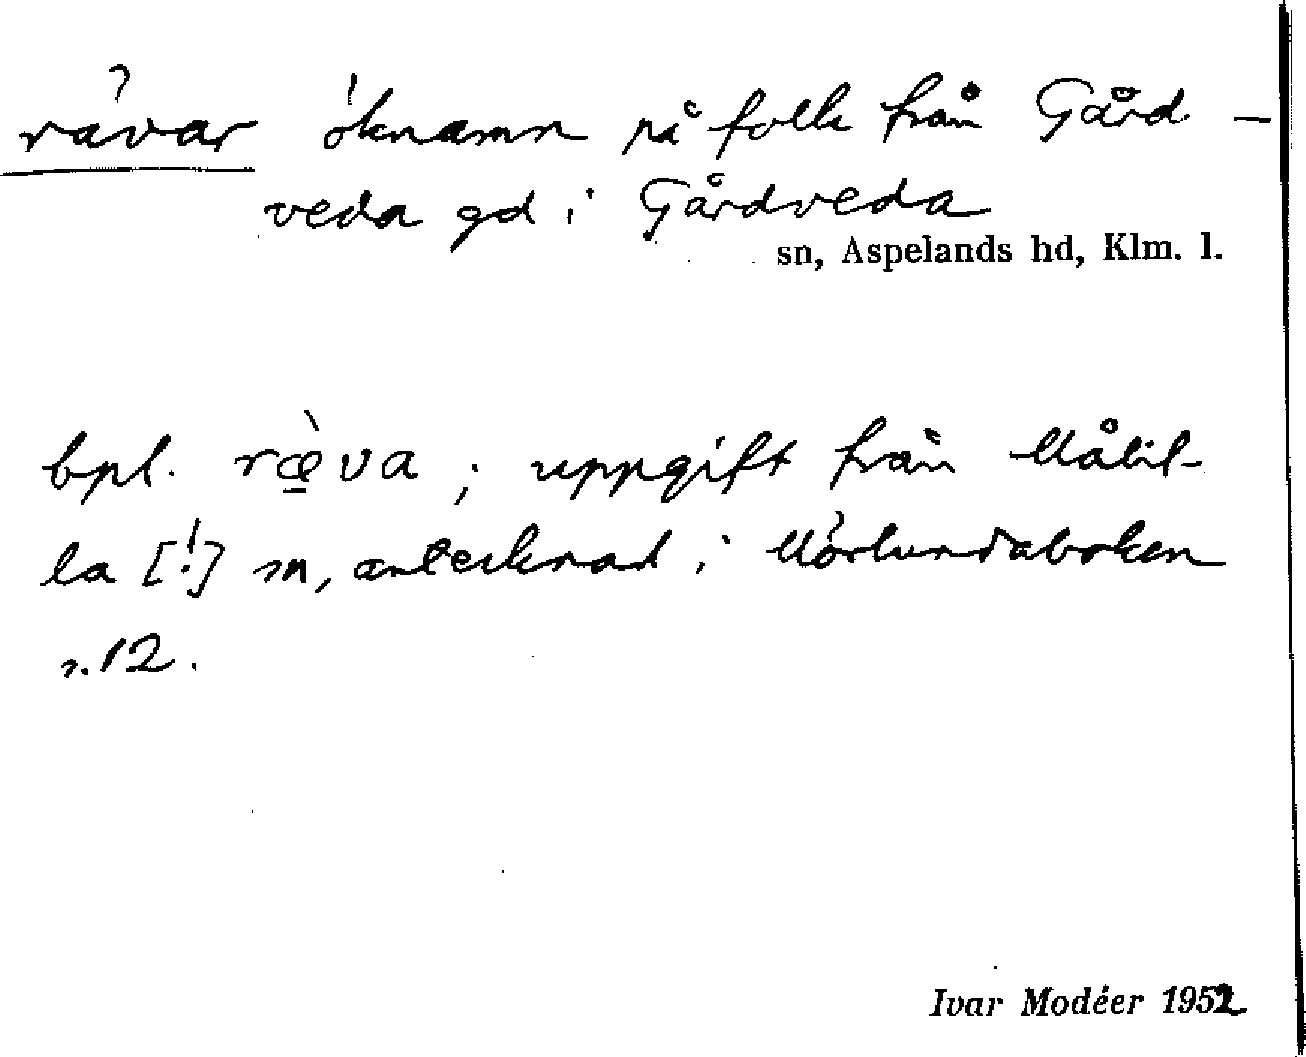 rävar öknamn på folk från Gård-
veda gd i Gårdveda
sn, Aspelands hd, Klm. l.
bpl. ræ̱̀va ; uppgift från Målil-
la [!] sn, antecknad i Mörlundaboken
s. 12.
Ivar Modéer 1952